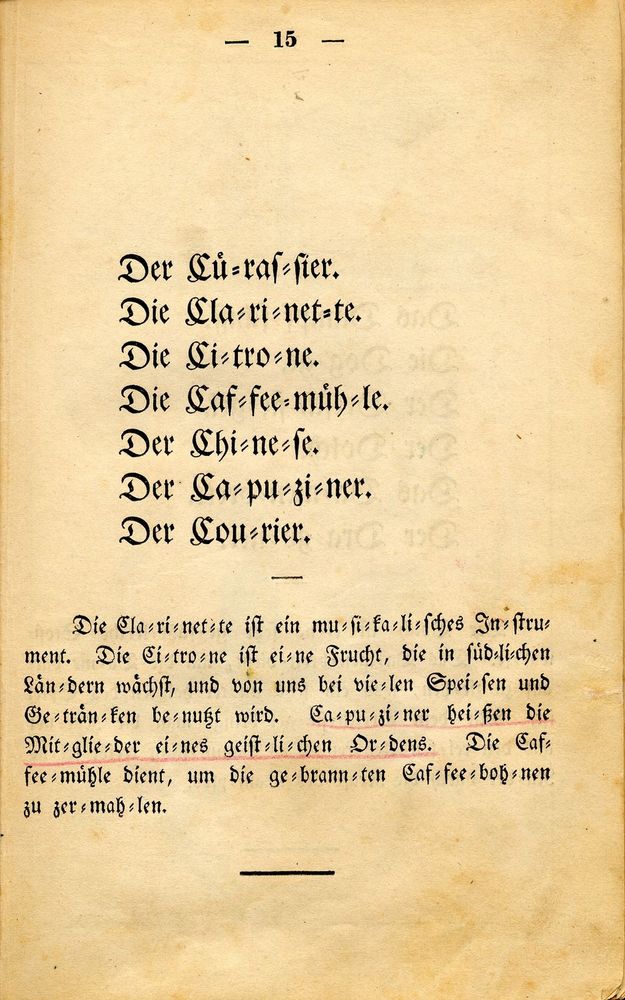 — 15 —
Der Cü-ras-sier.
Die Cla-ri-net-te.
Die Ci-tro-ne.
Die Caf-fee-müh-le.
Der Chi-ne-se.
Der Ca-pu-zi-ner.
Der Cou-rier.
Die Cla-ri-net-te ist ein mu-si-ka-li-sches In-stru-
ment. Die Ci-tro-ne ist ei-ne Frucht, die in süd-li-chen
Län-dern wächst, und von uns bei vie-len Spei-sen und
Ge-trän-ken be-nutzt wird. Ca-pu-zi-ner hei-ßen die
Mit-glie-der ei-nes geist-li-chen Or-dens. Die Caf-
fee-mühle dient, um die ge-brann-ten Caf-fee-boh-nen
zu zer-mah-len.